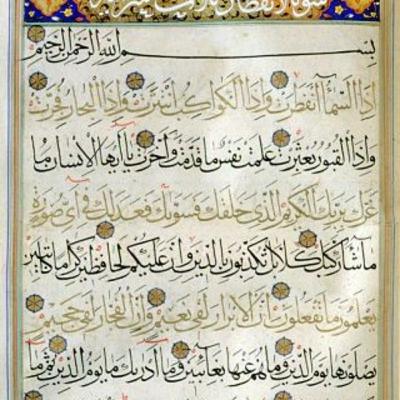 سورة الانفطار
بسم الله الرحمن الرحيم
اذا السماء انفطرت واذا الكواكب انتثرت واذا البحار فجرت
واذا القبور بعثرت علمت نفس ما قدمت واخرت يا ايها الانسان ما
غرك بربك الكريم الذي خلقك فسويك فعدلك في اي صورة
ما شاء ركبك كلا بل تكذبون بالدين وان عليكم لحافظين كراما كاتبين
يعلمون ما تفعلون ان الابرار لفي نعيم وان الفجار لفي جحيم
يصلونها يوم الدين وما هم عنها بغائبين وما ادريك ما يوم الدين ثم ما